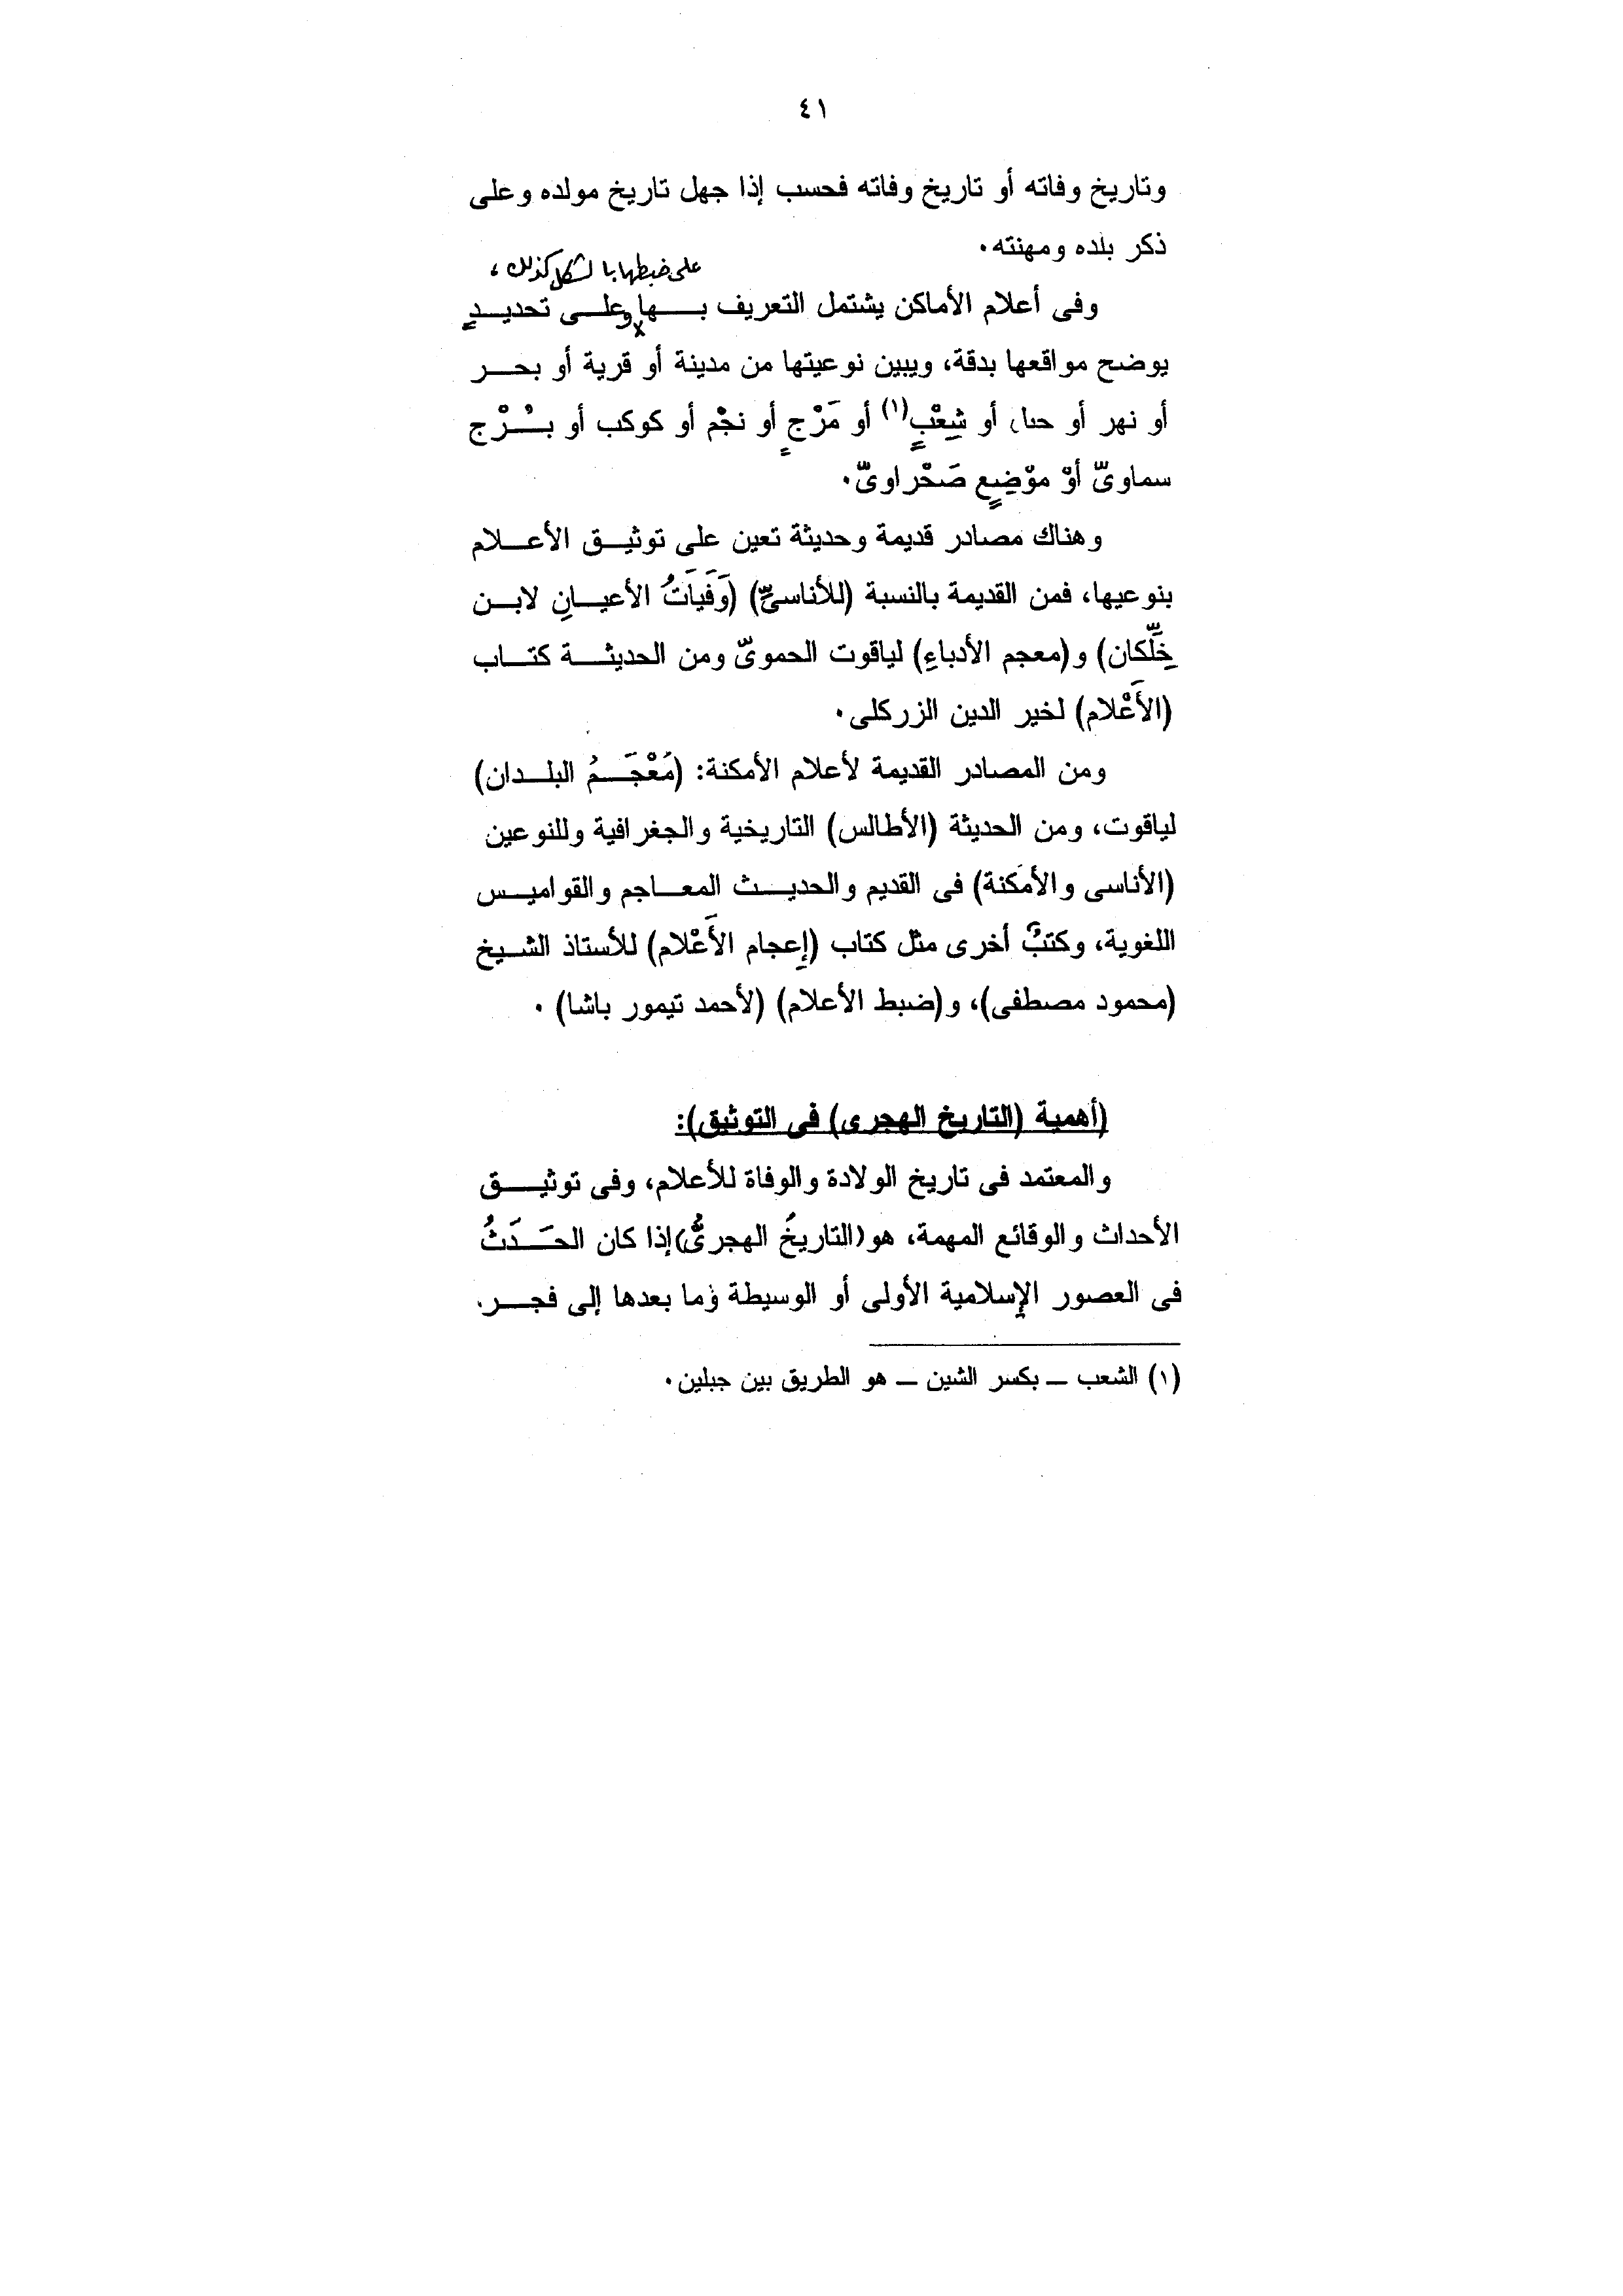 ٤١
وتاريخ وفاته أو تاريخ وفاته فحسب إذا جهل تاريخ مولده وعلى
ذكر بلده ومهنته٠
على ضبطها بالشكل كذلك،
وفى أعلام الأماكن يشتمل التعريف بـــها وعلـــى تحديـــدٍ
يوضح مواقعها بدقة، ويبين نوعيتها من مدينة أو قرية أو بحـــر
أو نهر أو جبل أو شِعْبٍ(١) أو مَرْجٍ أو نجْم أو كوكب أو بـــُرْج
سماوىّ أوْ موْضِعٍ صَحْراوىّ٠
وهناك مصادر قديمة وحديثة تعين على توثيـــق الأعـــلام
بنوعيها، فمن القديمة بالنسبة (للأناسىّ) (وَفَيَاتُ الأعيـــانِ لابـــن
خِلِّكان) و(معجم الأدباءِ) لياقوت الحموىّ ومن الحديثـــة كتـــاب
(الأَعْلام) لخير الدين الزركلى٠
ومن المصادر القديمة لأعلام الأمكنة: (مُعْجَـــمُ البلـــدان)
لياقوت، ومن الحديثة (الأطالس) التاريخية والجغرافية وللنوعين
(الأناسى والأمكنة) فى القديم والحديـــث المعـــاجم والقواميـــس
اللغوية، وكتبٌ أخرى مثل كتاب (إِعجام الأَعْلام) للأستاذ الشـــيخ
(محمود مصطفى)، و(ضبط الأعلام) (لأحمد تيمور باشا) ٠
(أهمية (التاريخ الهجرى) فى التوثيق):
والمعتمد فى تاريخ الولادة والوفاة للأعلام، وفى توثيـــق
الأحداث والوقائع المهمة، هو (التاريخُ الهجرىُّ) إذا كان الحَـــدَثُ
فى العصور الإسلامية الأولى أو الوسيطة وما بعدها إلى فجـــر
(١) الشعب ــ بكسر الشين ــ هو الطريق بين جبلين٠